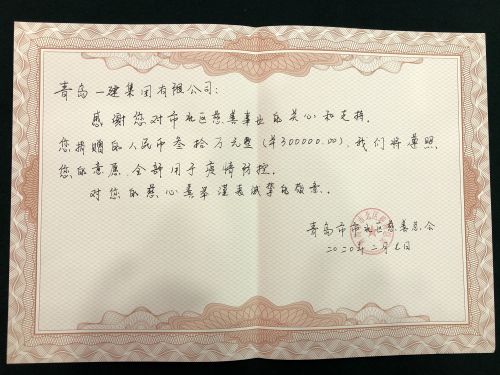 青岛一建集团有限公司:
感谢您对市北区慈善事业的关心和支持。
您捐赠的人民币叁拾万元整(¥300000.00),我们将遵照
您的意愿,全部用于疫情防控。
对您的慈心善举谨表诚挚的敬意。
青岛市市北区慈善总会
2020年二月七日